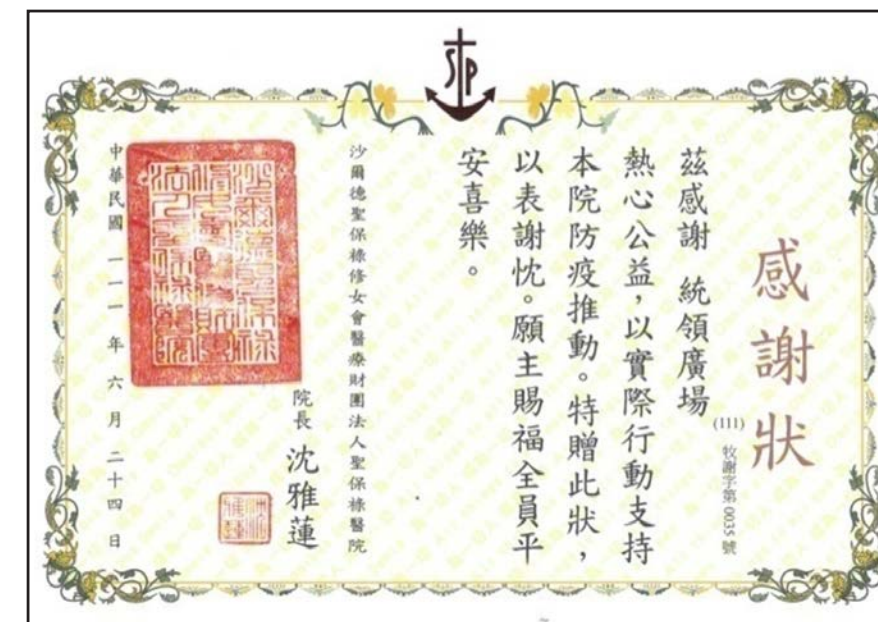 感謝狀
(111) 牧謝字第 0035 號
茲感謝 統領廣場
熱心公益，以實際行動支持
本院防疫推動。特贈此狀，
以表謝忱。願主賜福全員平
安喜樂。
沙爾德聖保祿修女會醫療財團法人聖保祿醫院
院長 沈雅蓮
中華民國 一一一 年 六 月 二十四 日